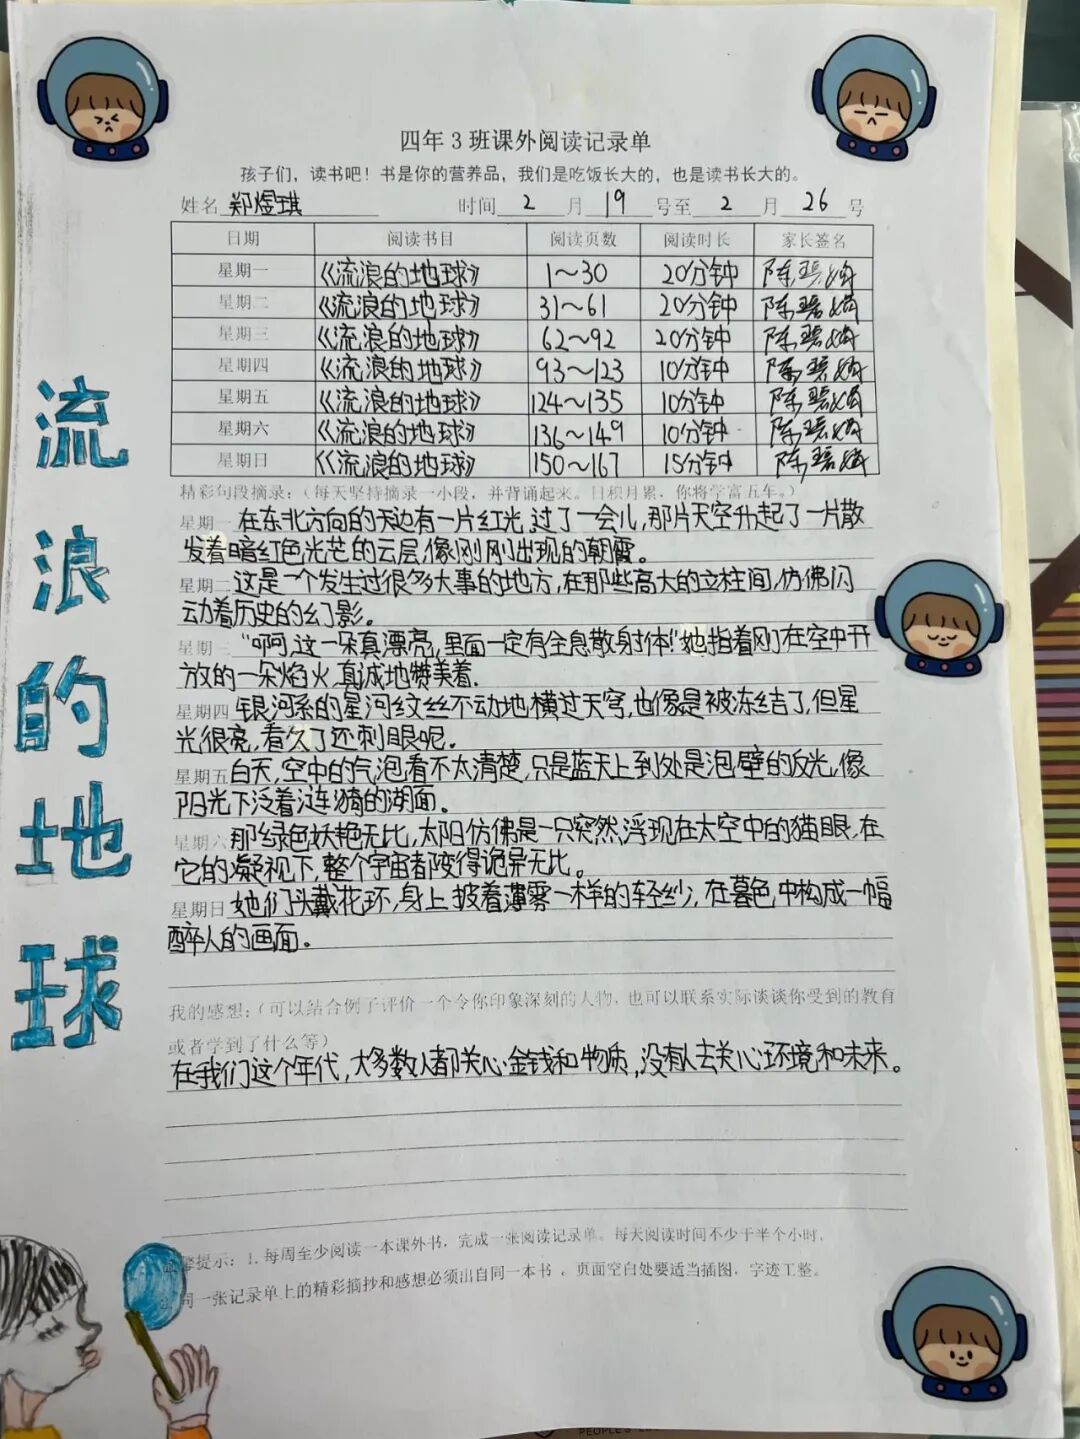 四年3班课外阅读记录单
孩子们，读书吧！书是你的营养品，我们是吃饭长大的，也是读书长大的。
姓名 郑煜琪 时间 2 月 19 号至 2 月 26 号
日期 阅读书目 阅读页数 阅读时长 家长签名
星期一 《流浪的地球》 1～30 20分钟 陈碧
星期二 《流浪的地球》 31～61 20分钟 陈碧
星期三 《流浪的地球》 62～92 20分钟 陈碧
星期四 《流浪的地球》 93～123 10分钟 陈碧
星期五 《流浪的地球》 124～135 10分钟 陈碧
星期六 《流浪的地球》 136～149 10分钟 陈碧
星期日 《流浪的地球》 150～167 15分钟 陈碧
精彩句段摘录：（每天坚持摘录一小段，并背诵起来。日积月累，你将学富五车。）
星期一 在东北方向的天边有一片红光，过了一会儿，那片天空升起了一片散
发着暗红色光芒的云层，像刚刚出现的朝霞。
星期二 这是一个发生过很多大事的地方，在那些高大的立柱间，仿佛闪
动着历史的幻影。
星期三 “啊，这一朵真漂亮，里面一定有全息散射体！”她指着刚在空中开
放的一朵焰火，真诚地赞美着.
星期四 银河系的星河纹丝不动地横过天穹，也像是被冻结了，但星
光很亮，看久了还刺眼呢。
星期五 白天，空中的气泡看不太清楚，只是蓝天上到处是泡壁的反光，像
阳光下泛着涟漪的湖面。
星期六 那绿色妖艳无比，太阳仿佛是一只突然浮现在太空中的猫眼，在
它的凝视下，整个宇宙都变得诡异无比。
星期日 她们头戴花环，身上披着薄雾一样的轻纱，在暮色中构成一幅
醉人的画面。
我的感想：（可以结合例子评价一个令你印象深刻的人物，也可以联系实际谈谈你受到的教育
或者学到了什么等）
在我们这个年代，大多数人都关心金钱和物质，没有人去关心环境和未来。
馨提示：1. 每周至少阅读一本课外书，完成一张阅读记录单。每天阅读时间不少于半个小时，
同一张记录单上的精彩摘抄和感想必须出自同一本书 。页面空白处要适当插图，字迹工整。
流
浪
的
地
球